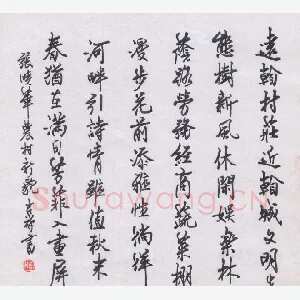 远翰村庄近翰城文明生
态树新风休闲娱乐林
荫路劳务经商蔬菜棚
漫步花前添雅性徜徉
河畔引诗情虽值秋末
春犹在满目芳菲入画屏
张晓华农村新貌
Shufawang.cn